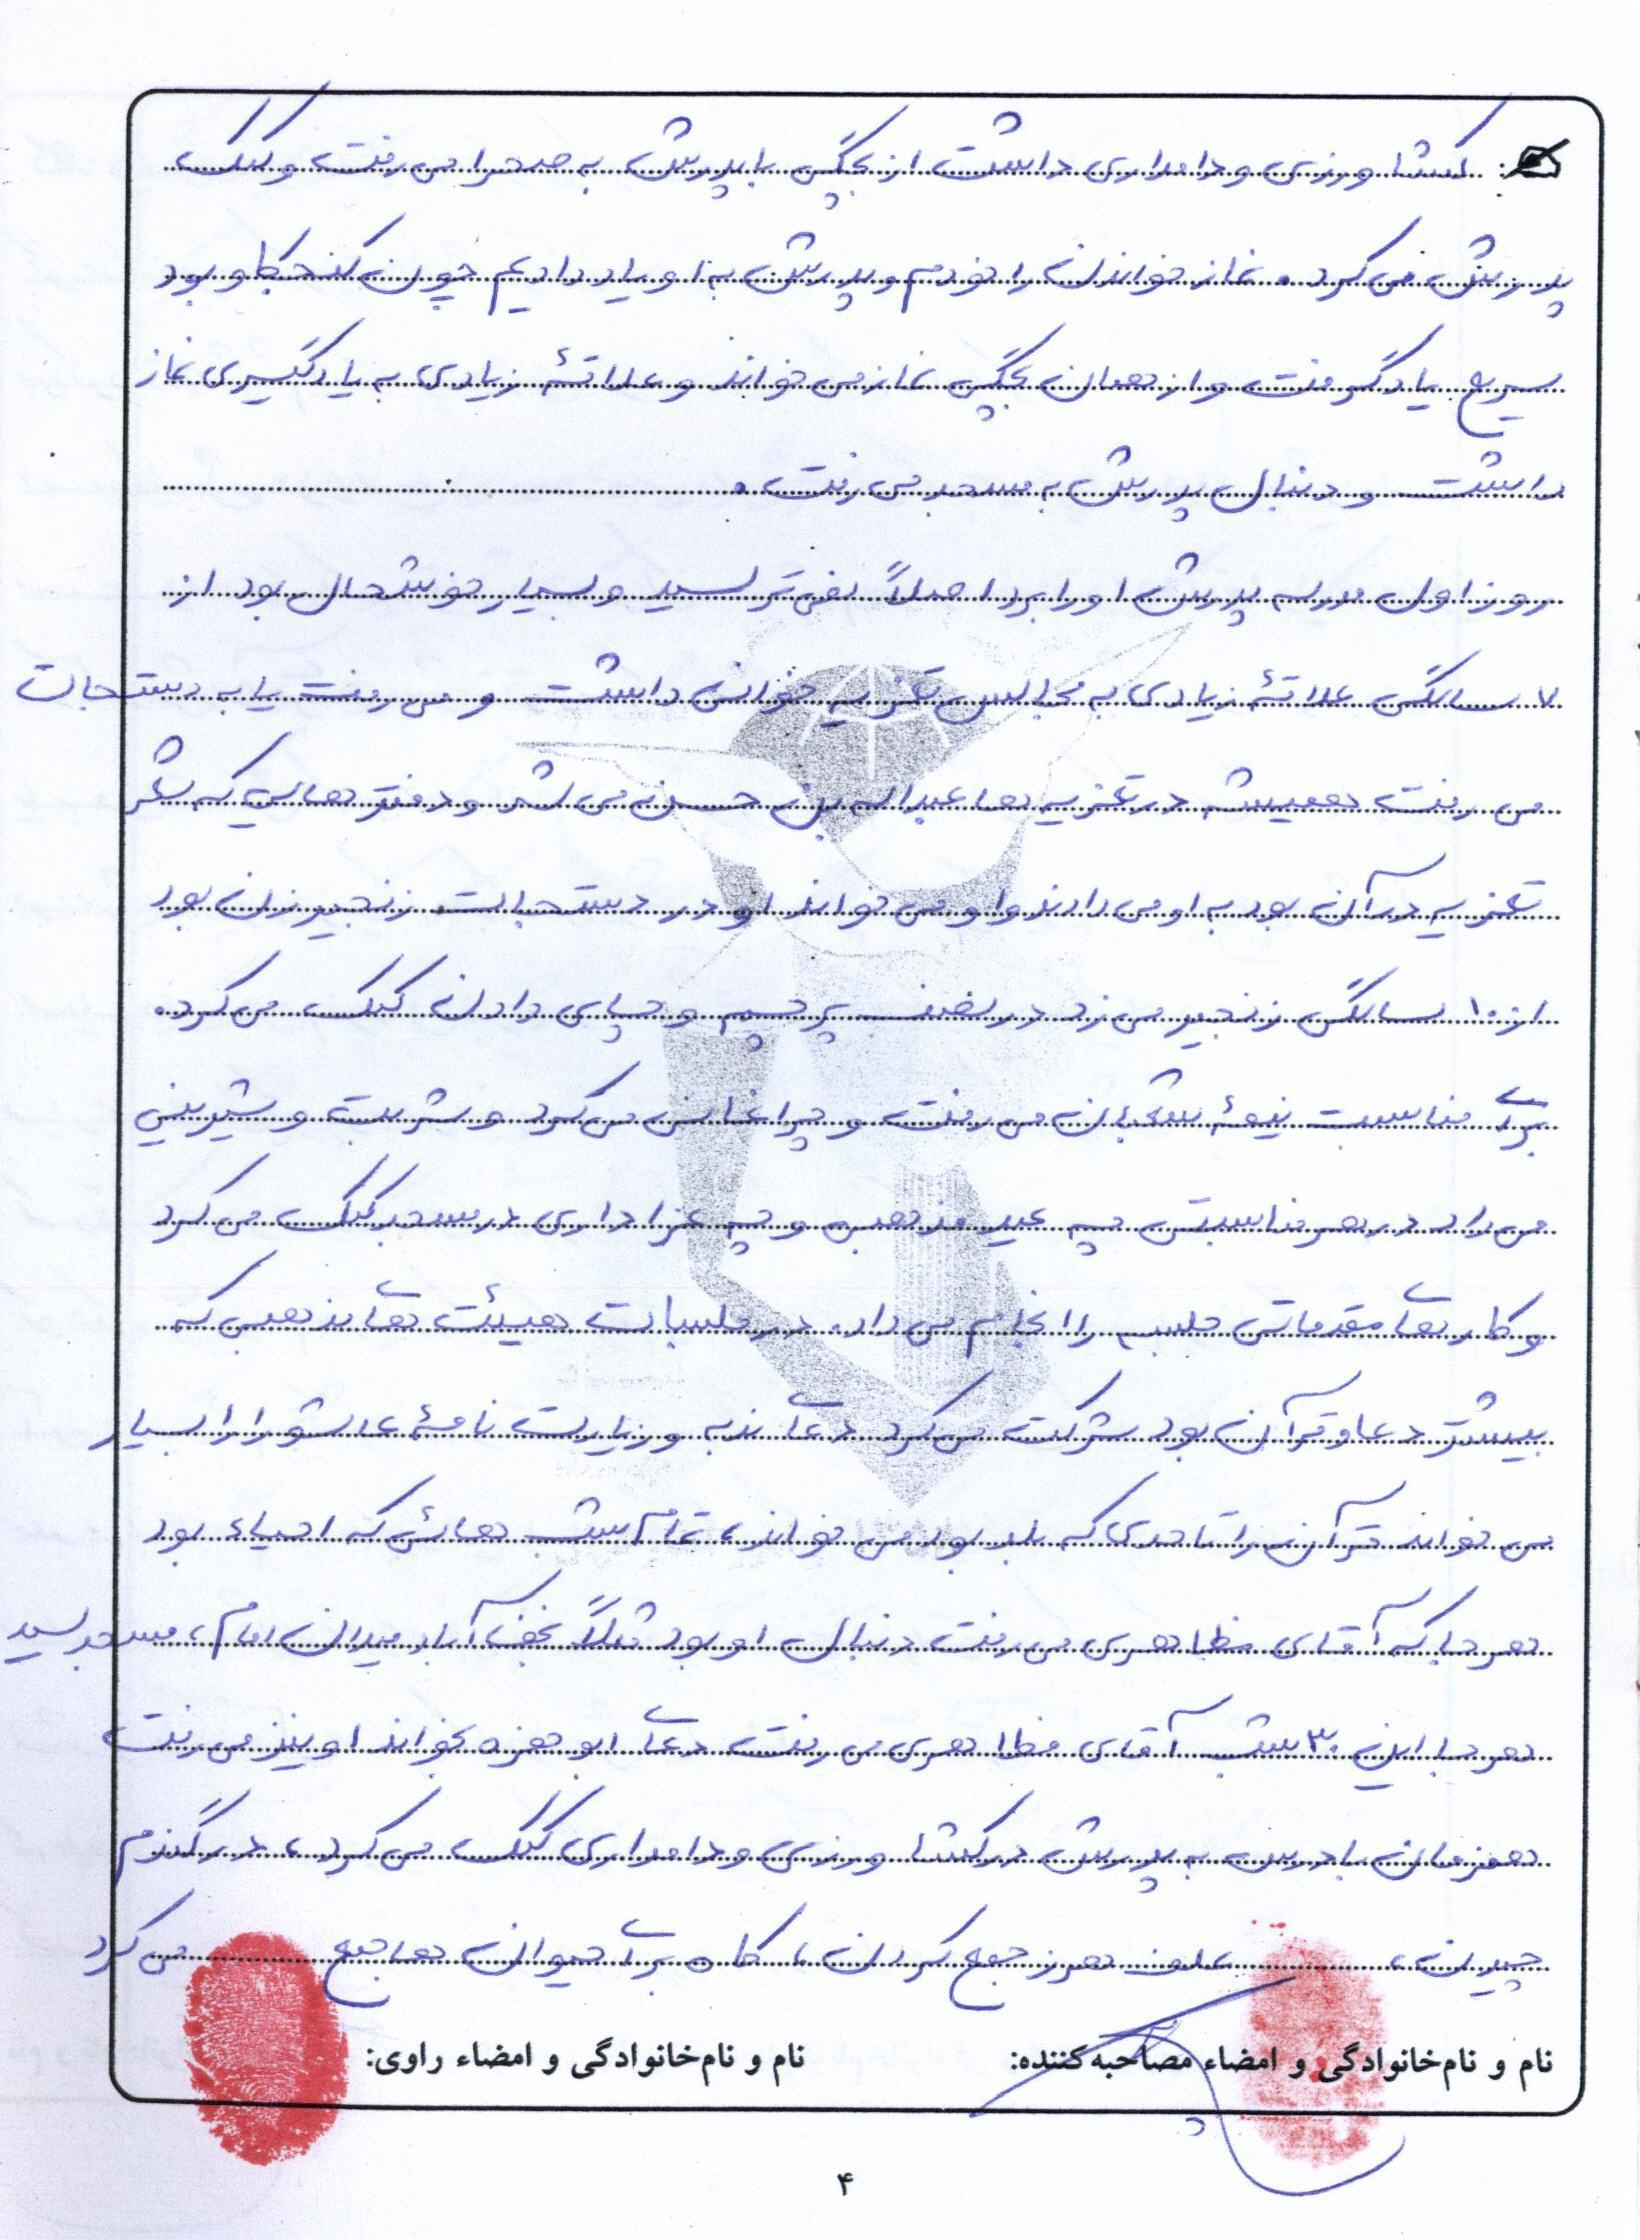 کشاورزی و دامداری داشت از بچگی با پدرش به صحرا می رفت و کمک
پدرش می کرد. نماز خواندن را خودم و پدرش به او یاد دادیم چون کنجکاو بود
سریع یاد گرفت و از همان بچگی نماز می خواند و علاقهٔ زیادی به یادگیری نماز
داشت و دنبال پدرش به مسجد می رفت.
روز اول مدرسه پدرش او را برد اصلاً نمی ترسید و بسیار خوشحال بود از
۷ سالگی علاقهٔ زیادی به مجالس تعزیه خوانی داشت و می رفت یا به دستجات
می رفت همیشه در تعزیه ها عبداله بن حسن می شد و دفترهایی که شعر
تعزیه در آن بود به او می دادند و او می خواند او در دستجات زنجیرزن بود
از ۱۰ سالگی زنجیر می زد در نصب پرچم و چای دادن کمک می کرد.
برای مناسبت نیمهٔ شعبان می رفت و چراغانی می کرد و شربت و شیرینی
می داد در هر مناسبتی چه عید مذهبی و چه عزاداری در مسجد کمک می کرد
و کارهای مقدماتی جلسه را انجام می داد. در جلسات هیئت های مذهبی که
بیشتر دعا و قرآن بود شرکت می کرد دعای ندبه و زیارت نامهٔ عاشورا را بسیار
می خواند قرآن را تا حدی که بلد بود می خواند، تمام شب هائی که احیاء بود
هر جا که آقای مظاهری می رفت دنبال او بود مثلاً نجف آباد میدان امام، مسجد سید
هر جا این ۳۰ شب آقای مظاهری می رفت دعای ابوحمزه بخواند او نیز می رفت
همزمان با درس به پدرش در کشاورزی و دامداری کمک می کرد، در گندم
چیدن، علف هرز جمع کردن، کاه برای حیوان ها جمع می کرد
نام و نام‌خانوادگی و امضاء مصاحبه‌کننده: نام و نام‌خانوادگی و امضاء راوی:
۴